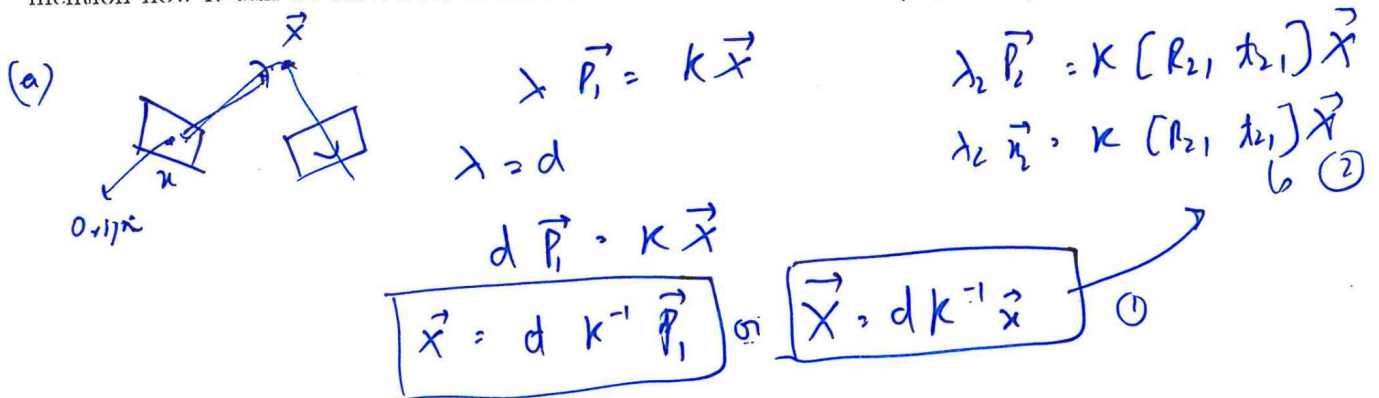 (a)
X⃗
x
λ P⃗₁ = K X⃗
λ = d
d P⃗₁ = K X⃗
X⃗ = d K⁻¹ P⃗₁ or X⃗ = d K⁻¹ x⃗ ①
λ₂ P⃗₂ = K [R₂₁ t₂₁] X⃗
λ₂ x⃗₂ = K [R₂₁ t₂₁] X⃗
②